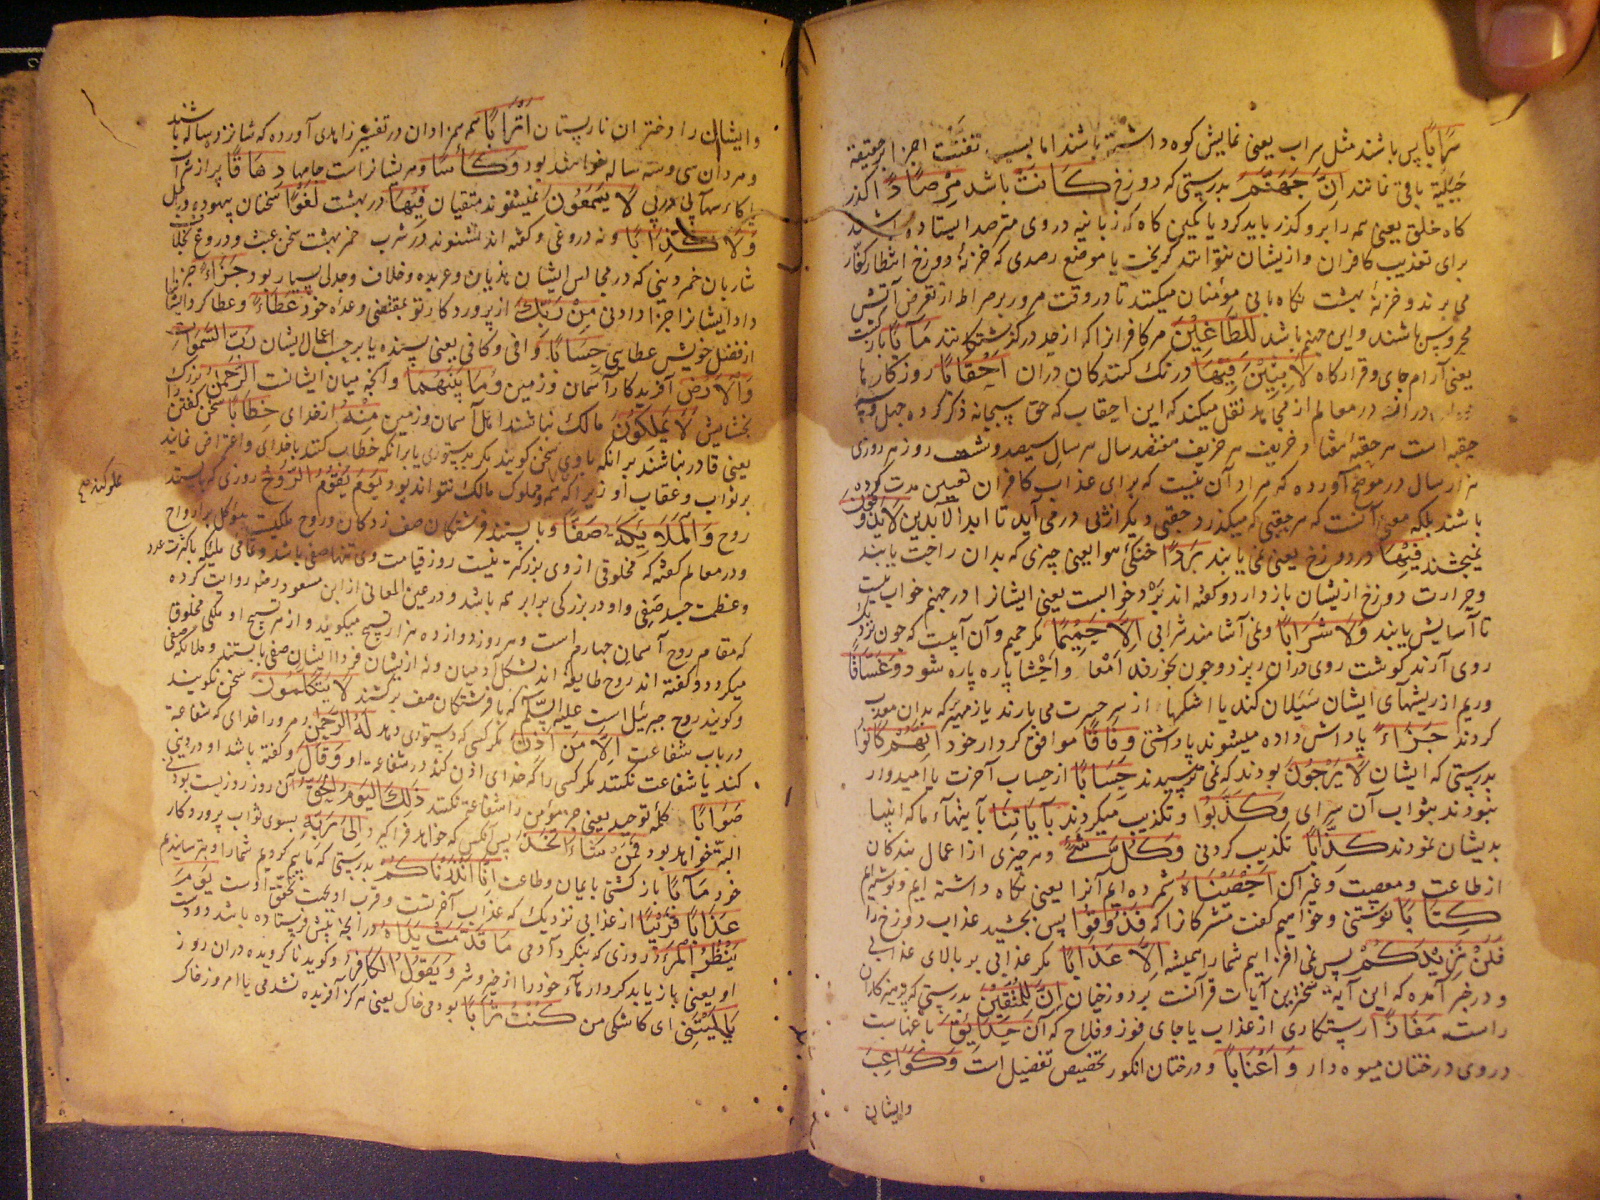 سَرَابًا پس باشند مثل سراب یعنی نمایش کوه داشته باشند اما بسبب تفتت اجزا بر حقیقة
جبلیة باقی نمانند اِنَّ جَهَنَّمَ بدرستی که دوزخ کَانَتْ باشد مِرْصَادًا کذر
کاه خلق یعنی همه را برو کذر باید کرد یا کمین کاه که زبانیه در وی مترصد ایستاده باشند
برای تعذیب کافران و ازیشان نتوانند کریخت یا موضع رصدی که خزنهٔ دوزخ انتظار کفار
می برند و خزنهٔ بهشت نکاه بانی مؤمنان میکنند تا در وقت مرور بر صراط از تعرض آتش
محروس باشند و این جهنم باشد لِلطَّاغِیْنَ مر کافرانرا که از حد در کذشتکانند مَآبًا بازکشت
یعنی آرام جای و قرارکاه لَابِثِیْنَ فِیْهَا درنک کنندکان دران اَحْقَابًا روزکارها
در معالم از مجاهد نقل میکند که این احقاب که حق سبحانه ذکر کرده چهل و سه
حقبه است هر حقبهٔ هفتاد خریف هر خریف هفتصد سال هر سال سیصد و شصت روز هر روزی
هزار سال در موضح آورده که مراد آن نیست که برای عذاب کافران تعیین مدت کرده
باشند بلکه معنی آنست که هر حقبی که میکذرد حقبی دیکر از پی در می آید تا ابد الآبدین لَا یَذُوْقُوْنَ
نمیچشند فِیْهَا در دوزخ یعنی نمی یابند بَرْدًا خنکیٔ هوا یعنی چیزی که بدان راحت یابند
و حرارت دوزخ ازیشان باز دارد و کفته اند برد خوابست یعنی ایشانرا در جهنم خواب نیست
تا آسایش یابند وَلَا شَرَابًا و نمی آشامند شرابی اِلَّا حَمِیْمًا مکر حمیم و آن آبیست که چون نزد
روی آرند کوشت روی دران ریزد و چون بخورند امعا و احشا پاره پاره شود وَغَسَّاقًا
وریم از ریشهای ایشان سیلان کند یا اشکها از سر حسرت می بارند یا زمهریر که بدان معذب
کردند جَزَآءً پاداش داده میشوند پاداشتی وِفَاقًا موافق کردار خود اِنَّهُمْ کَانُوْا
بدرستی که ایشان لَا یَرْجُوْنَ بودند که نمی ترسیدند حِسَابًا از حساب آخرت یا امیدوار
نبودند بثواب آن سرای وَکَذَّبُوْا و تکذیب میکردند بِآیَاتِنَا بآیتهاء ما که انبیا
بدیشان نمودند کِذَّابًا تکذیب کردنی وَکُلَّ شَیْءٍ و هر چیزی از اعمال بندکان
از طاعت و معصیت و غیر آن اَحْصَیْنَاهُ شمرده ایم آنرا یعنی نکاه داشته ایم و نوشته ایم
کِتَابًا نوشتنی و خواهیم کفت مشرکانرا که فَذُوْقُوْا پس بچشید عذاب دوزخ را
فَلَنْ نَزِیْدَکُمْ پس نمی افزاییم شمارا همیشه اِلَّا عَذَابًا مکر عذابی بر بالای عذابی
و در خبر آمده که این آیه سخترین آیات قرآنست بر دوزخیان اِنَّ لِلْمُتَّقِیْنَ بدرستی که پرهیزکارانرا
راست مَفَازًا رستکاری از عذاب یا جای فوز و فلاح که آن حَدَایِقَ باغهاست
در وی درختان میوه دار وَاَعْنَابًا و درختان انکور تخصیص تفضیل است وَکَوَاعِبَ
و ایشان
و ایشان را دختران نارپستان اَتْرَابًا همه همزادان در تفسیر زاهدی آورده که شانزده ساله باشند
و مردان سی و سه ساله خواهند بود وَکَاْسًا و مر یشانراست جامها دِهَاقًا پر از شراب
یا کاسهای پی در پی لَا یَسْمَعُوْنَ نمیشنوند متقیان فِیْهَا در بهشت لَغْوًا سخنان بیهوده و باطل
وَلَا کِذَّابًا و نه دروغی و کفته اند نشنوند در شرب خمر بهشت سخن عبث و دروغ بخلاف
شاربان خمر دنیی که در مجالس ایشان هذیان و عربده و خلاف و جدلی بسیار بود جَزَآءً جزا
داد ایشانرا جزا دادنی مِنْ رَبِّکَ از پروردکار تو بمقتضی وعدهٔ خود عَطَآءً و عطا کرد ایشانرا
از فضل خویش عطایی حِسَابًا وافی و کافی یعنی بسنده یا بر حسب اعمال ایشان رَبِّ السَّمٰوَاتِ
وَالْاَرْضِ آفریدکار آسمان و زمین وَمَا بَیْنَهُمَا و آنچه میان ایشانست الرَّحْمٰنِ بزرک
بخشایش لَا یَمْلِکُوْنَ مالک نباشند اهل آسمان و زمین مِنْهُ از خدای خِطَابًا سخن کفتن
یعنی قادر نباشند بر آنکه با وی سخن کویند مکر بدستوری یا بر آنکه خطاب کنند با خدای و اعتراض نمایند
بر ثواب و عقاب او زیرا که همه مملوک‌ مالک نتواند بود یَوْمَ یَقُوْمُ الرُّوْحُ روزی که بایستد
روح وَالْمَلَائِکَةُ صَفًّا و بایستند فرشتکان صف زدکان و روح ملکیست مؤکل بر ارواح
و در معالم کفته که مخلوقی از وی بزرکتر نیست روز قیامت وی تنها صفی باشد و تمامی ملئکه با کثرت عدد
و عظمت جسد صفی و او در بزرکی برابر همه باشد و در عین المعانی از ابن مسعود رضه روایت کرده
که مقام روح آسمان چهارم است و هر روز دوازده هزار تسبیح میکوید و از هر تسبیح او ملکی مخلوق
میکردد و کفته اند روح طایفهٔ اند بشکل آدمیان و نه ازیشان فردا ایشان صفی بایستند و ملائکه صفی
و کویند روح جبرئیل است علیه السلم که با فرشتکان صف برکشند لَا یَتَکَلَّمُوْنَ سخن نکویند
در باب شفاعت اِلَّا مَنْ اَذِنَ مکر کسی که دستوری دهد لَهُ الرَّحْمٰنُ مر ورا خدای که شفاعة
کند یا شفاعت نکنند مکر کسی را که خدای اذن کند در شفاعة او وَقَالَ و کفته باشد او در دنیی
صَوَابًا کلمهٔ توحید یعنی جز مؤمن را شفاعة نکنند ذٰلِکَ الْیَوْمُ الْحَقُّ آن روز روزیست بودنی
البته خواهد بود فَمَنْ شَآءَ اتَّخَذَ پس آنکس که خواهد فراکیرد اِلٰی رَبِّهِ بسوی ثواب پروردکار
خود مَآبًا بازکشتی بایمان و طاعت اِنَّا اَنْذَرْنَاکُمْ بدرستی که ما بیم کردیم شمارا و بترسانیدیم
عَذَابًا قَرِیْبًا از عذابی نزدیک که عذاب آخرتست و قرب او بجهت تحقق اوست یَوْمَ
یَنْظُرُ الْمَرْءُ روزی که بنکرد آدمی مَا قَدَّمَتْ یَدَاهُ در آنچه پیش فرستاده باشد دو دست
او یعنی باز یابد کردارهاء خود را از خیر و شر وَیَقُوْلُ الْکَافِرُ و کوید ناکرویده دران روز
یَا لَیْتَنِیْ ای کاشکی من کُنْتُ تُرَابًا بودمی خاک یعنی هرکز آفریده نشدمی یا امروز خاک